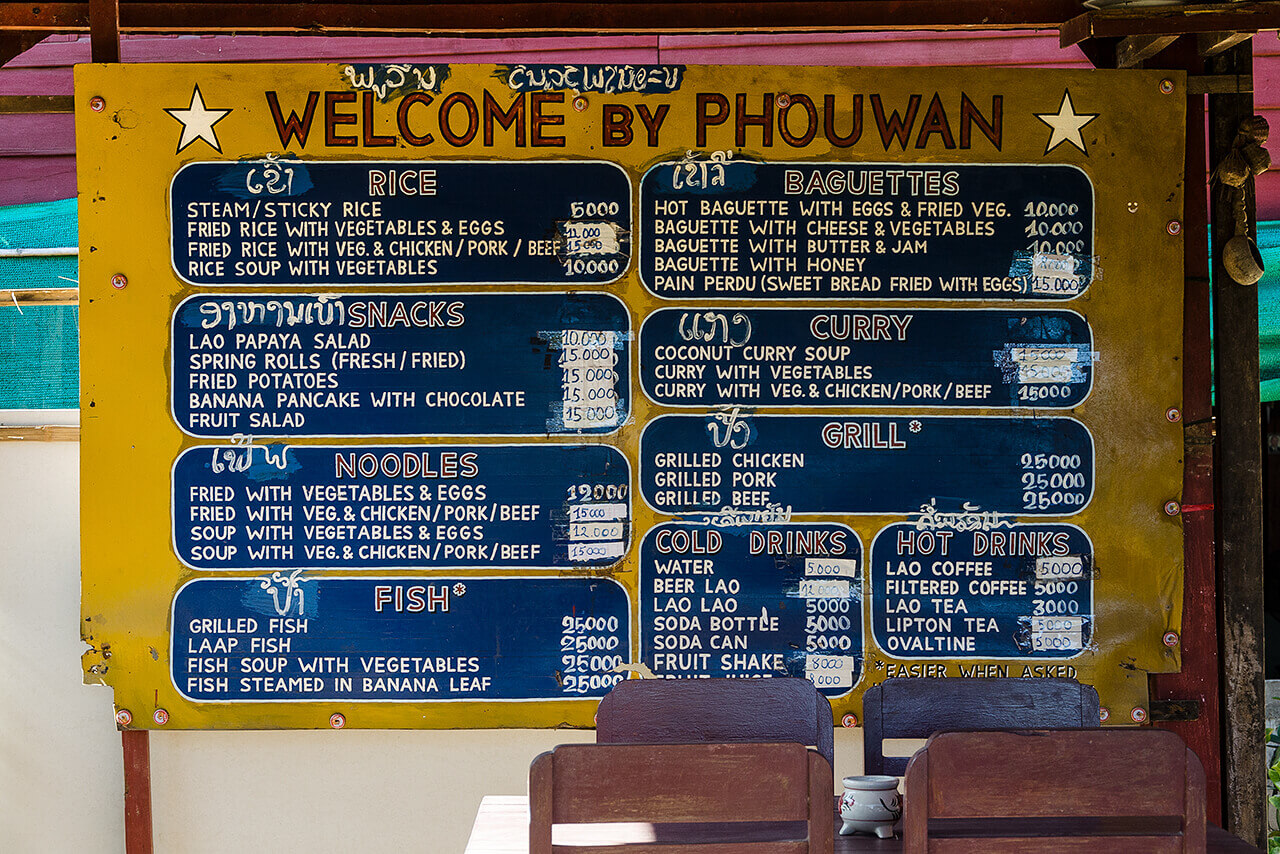 WELCOME BY PHOUWAN
ເຂົ້າ RICE
STEAM/STICKY RICE 5000
FRIED RICE WITH VEGETABLES & EGGS 11.000
FRIED RICE WITH VEG. & CHICKEN/PORK/BEEF 15000
RICE SOUP WITH VEGETABLES 10.000
SNACKS
LAO PAPAYA SALAD 10.000
SPRING ROLLS (FRESH/FRIED) 15.000
FRIED POTATOES 15.000
BANANA PANCAKE WITH CHOCOLATE 15.000
FRUIT SALAD 15.000
ເຝີ NOODLES
FRIED WITH VEGETABLES & EGGS 12000
FRIED WITH VEG. & CHICKEN/PORK/BEEF 15000
SOUP WITH VEGETABLES & EGGS 12.000
SOUP WITH VEG. & CHICKEN/PORK/BEEF 15000
FISH*
GRILLED FISH 25000
LAAP FISH 25000
FISH SOUP WITH VEGETABLES 25000
FISH STEAMED IN BANANA LEAF 25000
BAGUETTES
HOT BAGUETTE WITH EGGS & FRIED VEG. 10.000
BAGUETTE WITH CHEESE & VEGETABLES 10.000
BAGUETTE WITH BUTTER & JAM 10.000
BAGUETTE WITH HONEY
PAIN PERDU (SWEET BREAD FRIED WITH EGGS) 15.000
ແກງ CURRY
COCONUT CURRY SOUP
CURRY WITH VEGETABLES
CURRY WITH VEG. & CHICKEN/PORK/BEEF 15000
ປີ້ງ GRILL*
GRILLED CHICKEN 25000
GRILLED PORK 25000
GRILLED BEEF 25000
COLD DRINKS
WATER 5.000
BEER LAO
LAO LAO 5000
SODA BOTTLE 5000
SODA CAN 5000
FRUIT SHAKE 8000
FRUIT JUICE 8000
HOT DRINKS
LAO COFFEE 5000
FILTERED COFFEE 5000
LAO TEA 3000
LIPTON TEA 5000
OVALTINE 5000
*EASIER WHEN ASKED